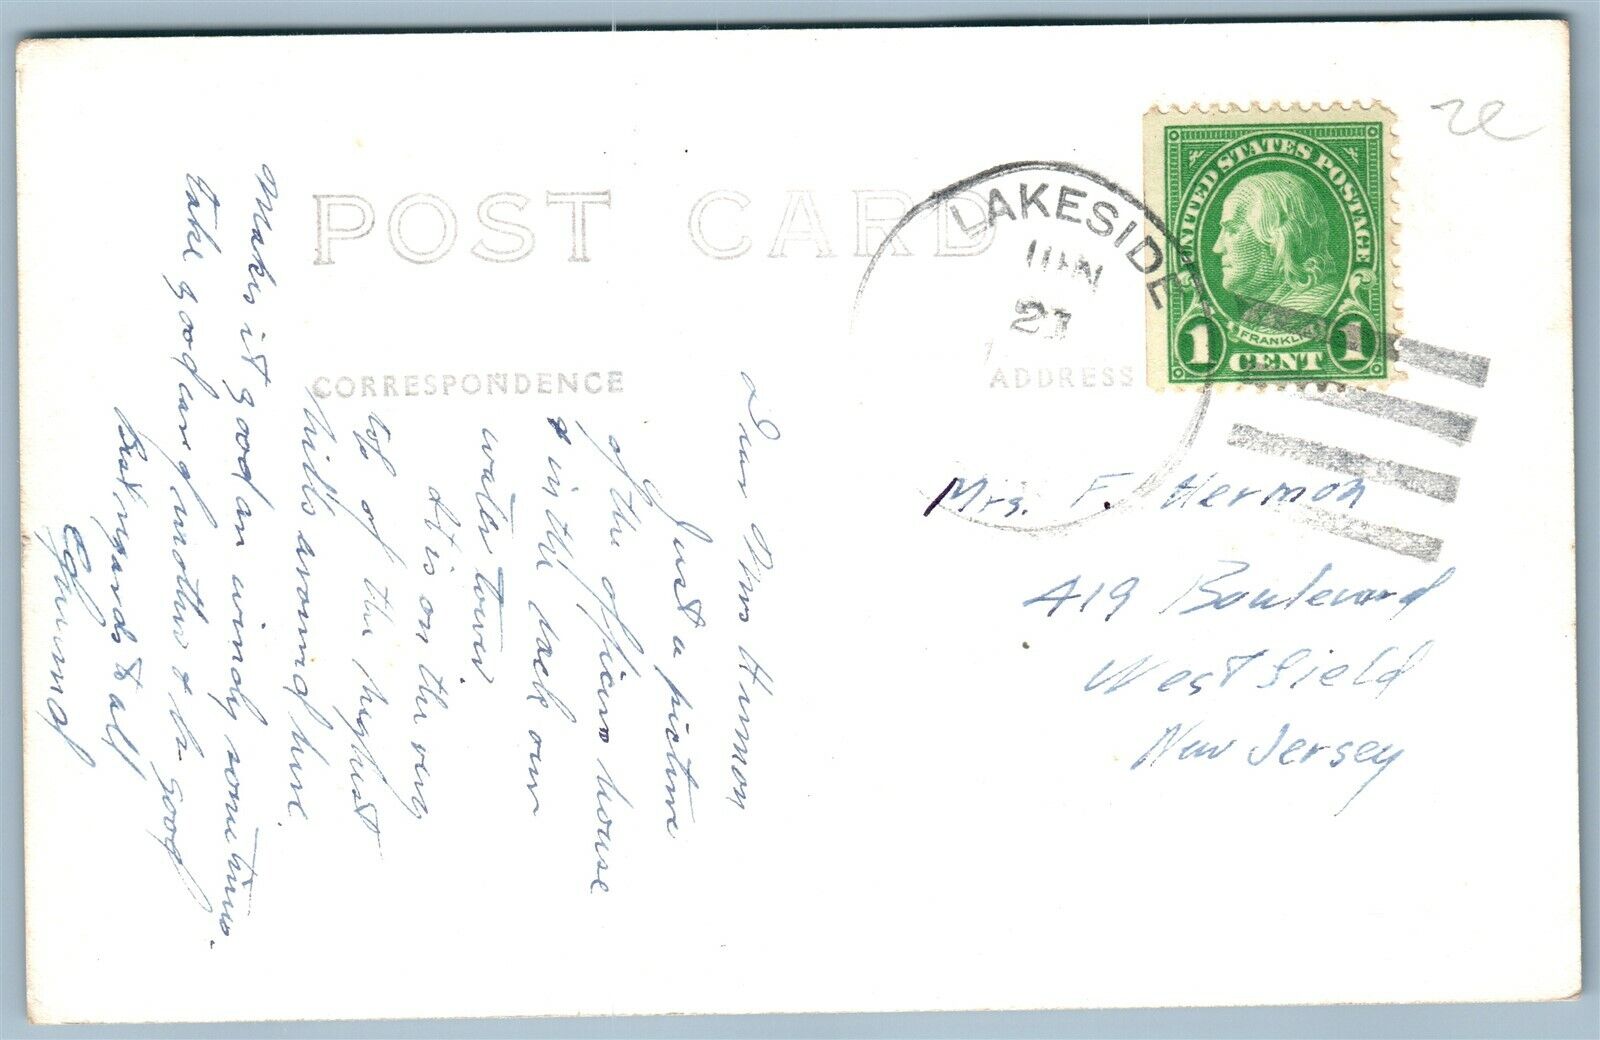 POST CARD
CORRESPONDENCE
ADDRESS
LAKESIDE
JUN
21
UNITED STATES POSTAGE
FRANKLIN
1 CENT 1
Mrs. F. Hermon
419 Boulevard
Westfield
New Jersey
Dear Mrs Hermon
Just a picture
of the officers house
& in the back our
water tower.
It is on the very
top of the highest
hills around here.
Makes it good an windy sometimes.
Take good care of mother & be good
Best regards to all